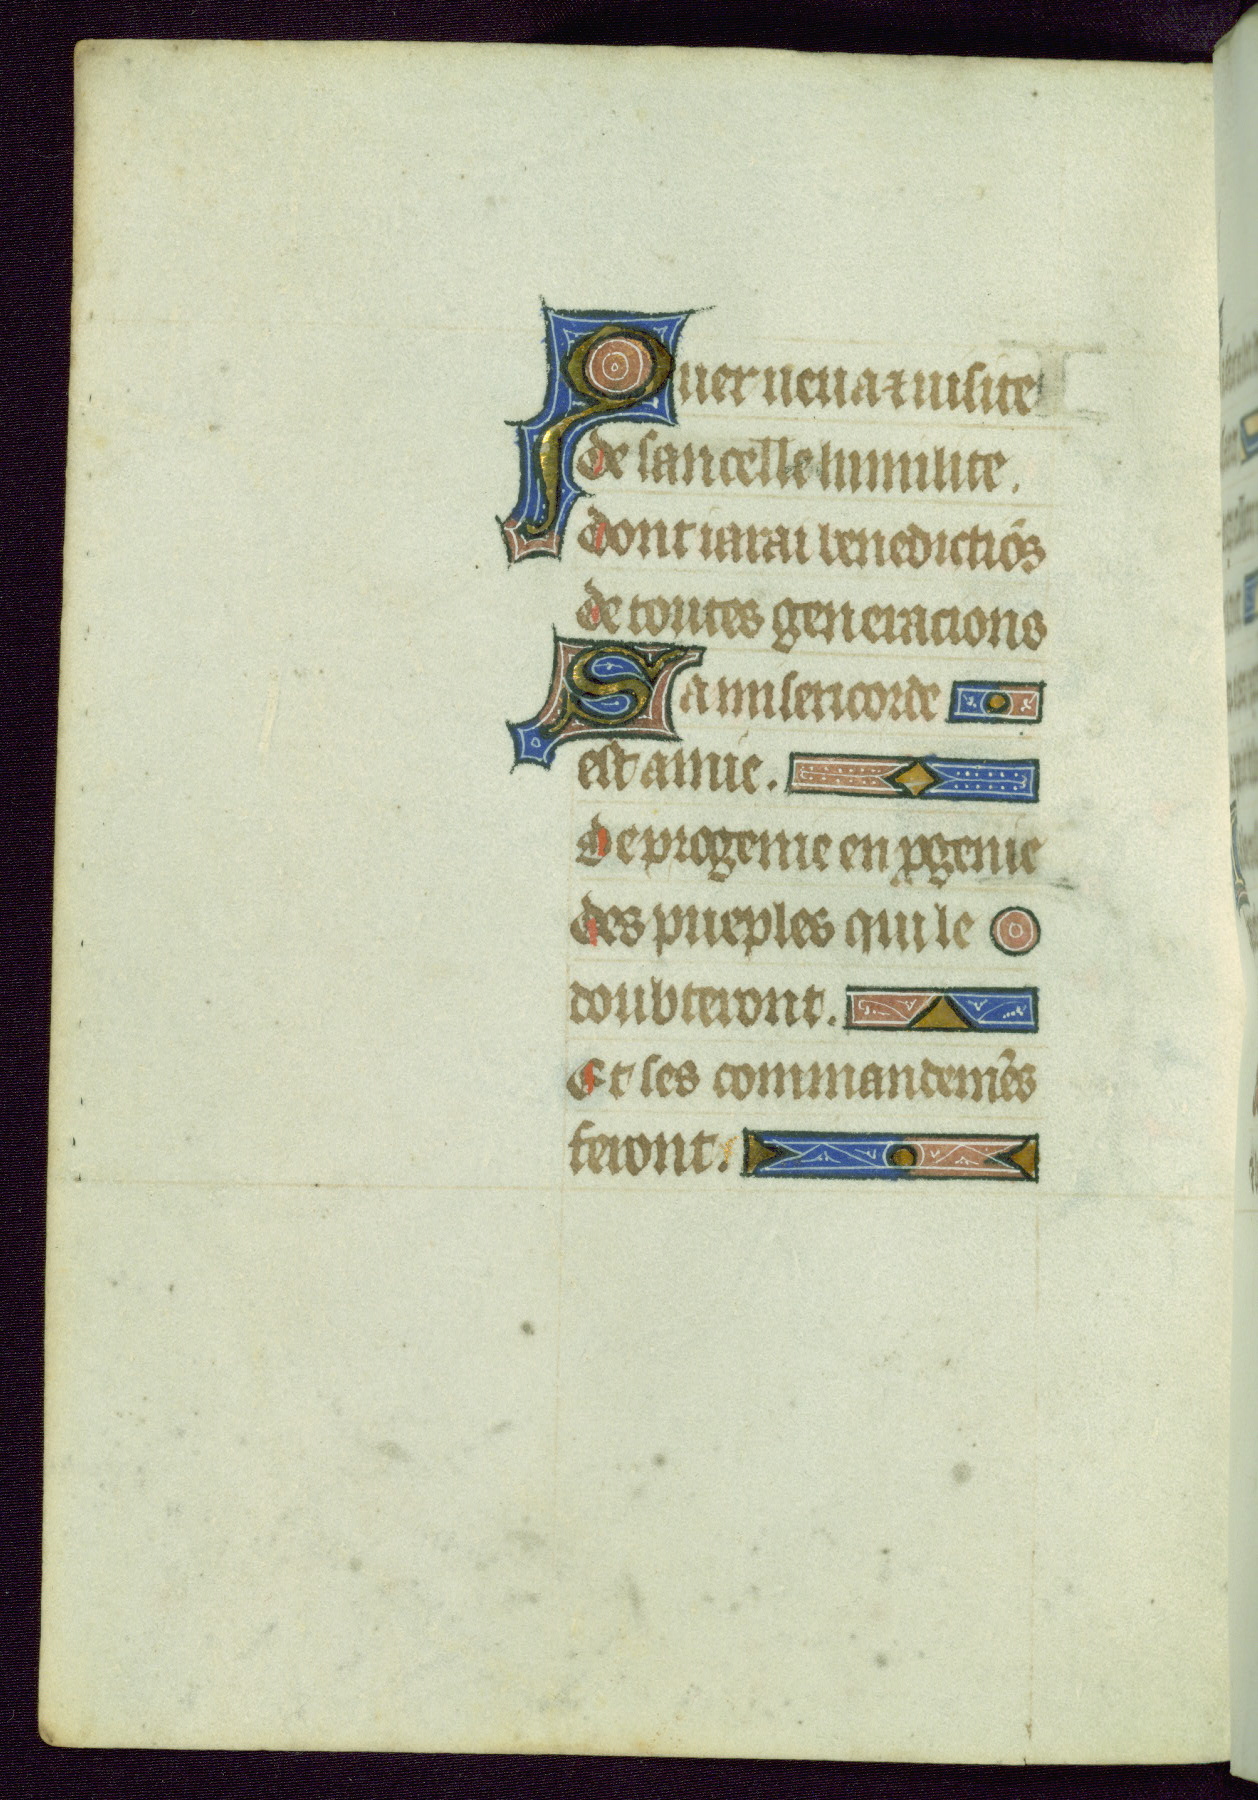 Quer ueu a ⁊ uisite
de sancelle humilite.
dont iarai benedictiōs
de toutes generacions
Sa misericorde
est amie.
De progenie en ꝓgenie
des pueples qui le
doubteront.
Et ses commandemēs
feront.